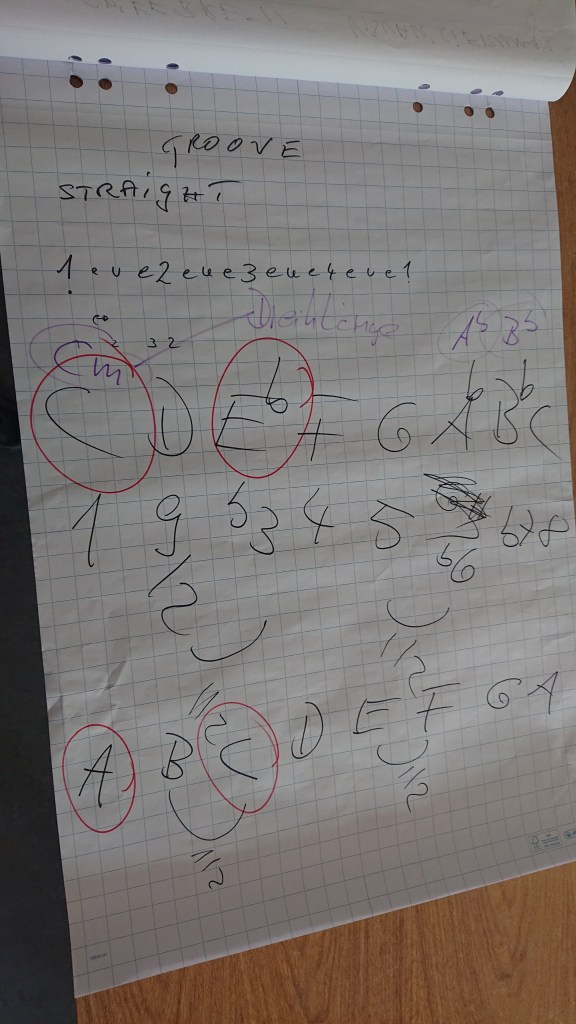 GROOVE
STRAIGHT
1 e u e 2 e u e 3 e u e 4 e u e 1
3 2
Cm Dreiklänge Ab Bb
C D Eb F G Ab Bb C
1 9 b3 4 5 b6 b7 8
1/2 1/2
1/2
A B C D E F G A
1/2 1/2